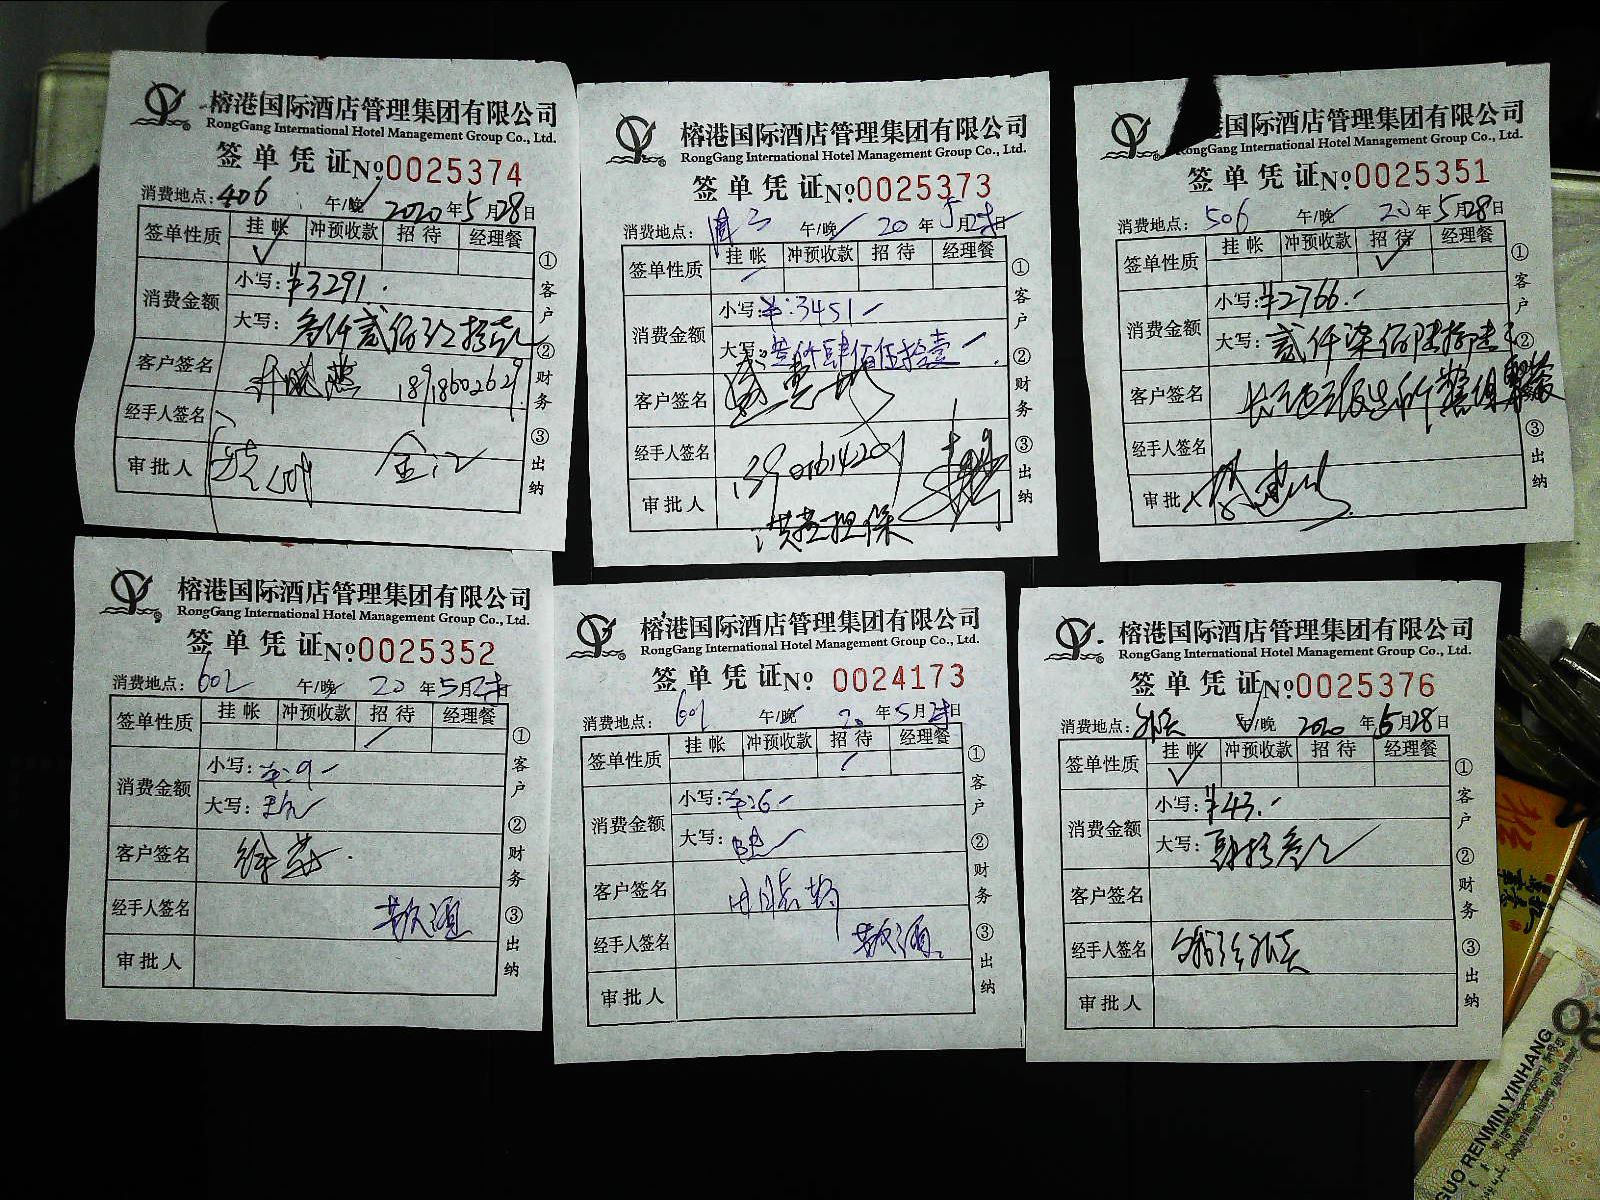 榕港国际酒店管理集团有限公司
RongGang International Hotel Management Group Co., Ltd.
签单凭证 № 0025374
消费地点: 406 午/晚 2020年5月28日
签单性质 挂帐 冲预收款 招待 经理餐
消费金额 小写: ¥3291.
大写: 叁仟贰佰玖拾壹元
客户签名 18918602629
经手人签名
审批人
①客户 ②财务 ③出纳
榕港国际酒店管理集团有限公司
RongGang International Hotel Management Group Co., Ltd.
签单凭证 № 0025373
消费地点: 午/晚 20年5月28日
签单性质 挂帐 冲预收款 招待 经理餐
消费金额 小写: ¥:3451
大写: 叁仟肆佰伍拾壹
客户签名
经手人签名
审批人
担保
①客户 ②财务 ③出纳
国际酒店管理集团有限公司
RongGang International Hotel Management Group Co., Ltd.
签单凭证 № 0025351
消费地点: 506 午/晚 20年5月28日
签单性质 挂帐 冲预收款 招待 经理餐
消费金额 小写: ¥2766.
大写: 贰仟柒佰陆拾陆元
客户签名
经手人签名
审批人
①客户 ②财务 ③出纳
榕港国际酒店管理集团有限公司
RongGang International Hotel Management Group Co., Ltd.
签单凭证 № 0025352
消费地点: 602 午/晚 20年5月28日
签单性质 挂帐 冲预收款 招待 经理餐
消费金额 小写: ¥:9
大写: 玖元
客户签名
经手人签名
审批人
①客户 ②财务 ③出纳
榕港国际酒店管理集团有限公司
RongGang International Hotel Management Group Co., Ltd.
签单凭证 № 0024173
消费地点: 602 午/晚 20年5月28日
签单性质 挂帐 冲预收款 招待 经理餐
消费金额 小写: ¥:6
大写: 陆元
客户签名
经手人签名
审批人
①客户 ②财务 ③出纳
榕港国际酒店管理集团有限公司
RongGang International Hotel Management Group Co., Ltd.
签单凭证 № 0025376
消费地点: 外卖 午/晚 2020年5月28日
签单性质 挂帐 冲预收款 招待 经理餐
消费金额 小写: ¥43.
大写: 肆拾叁元
客户签名
经手人签名 外卖
审批人
①客户 ②财务 ③出纳
GUO RENMIN YINHANG